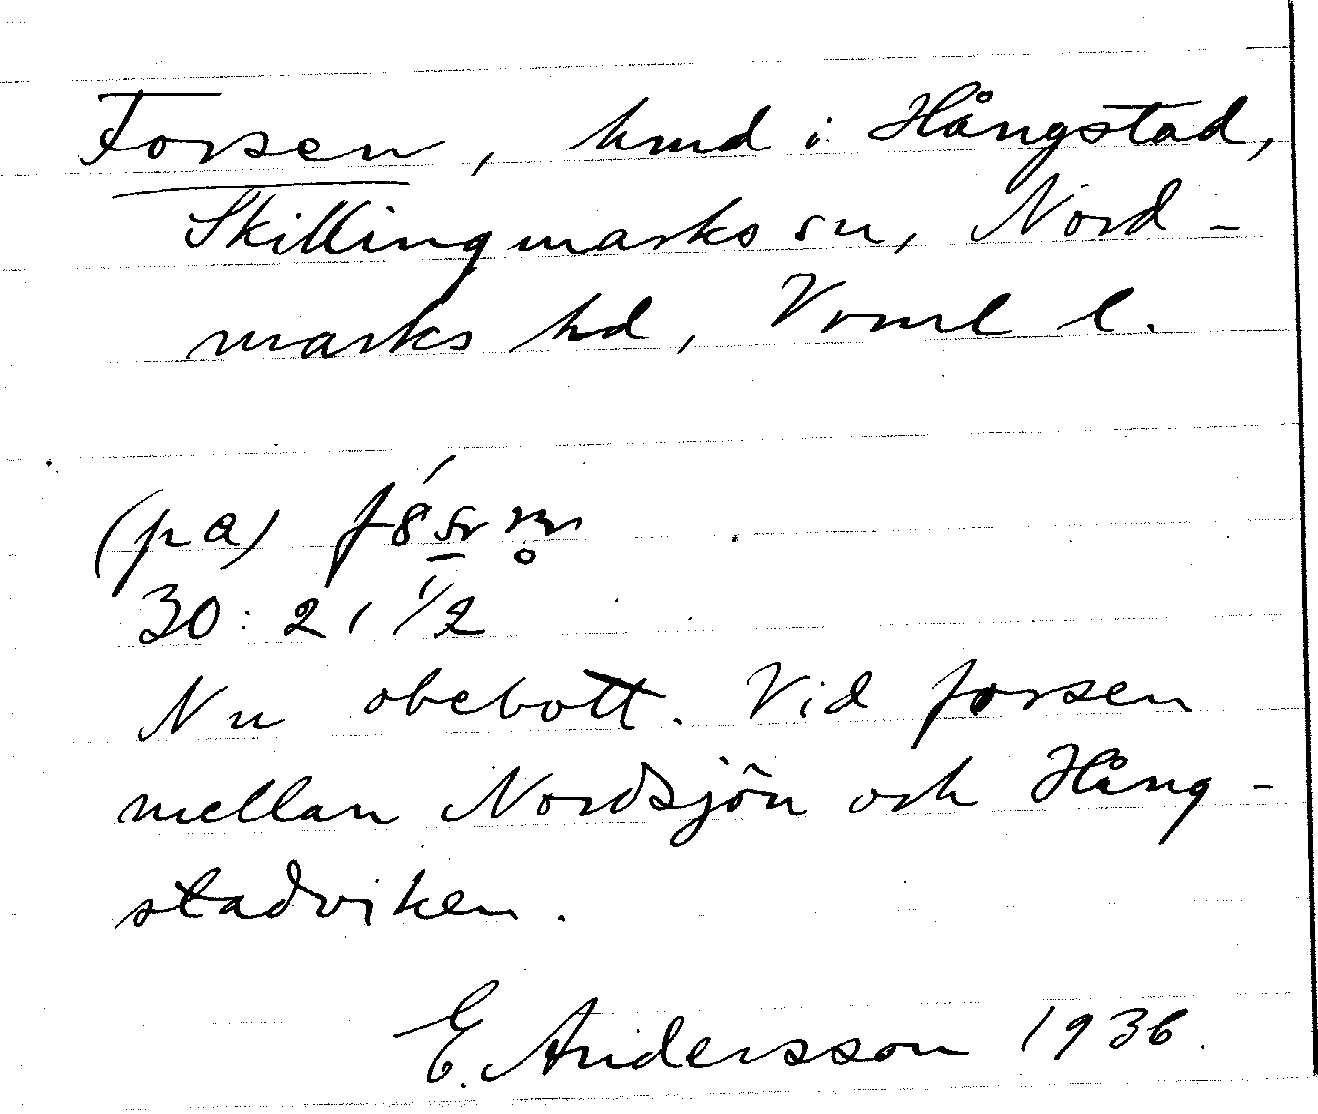 Forsen, hmd i Hångstad,
Skillingmarks sn, Nord-
marks hd, Vrml l.
(på)
30: 21 1/2
Nu obebott. Vid forsen
mellan Nordsjön och Hång-
stadviken.
E. Andersson 1936.